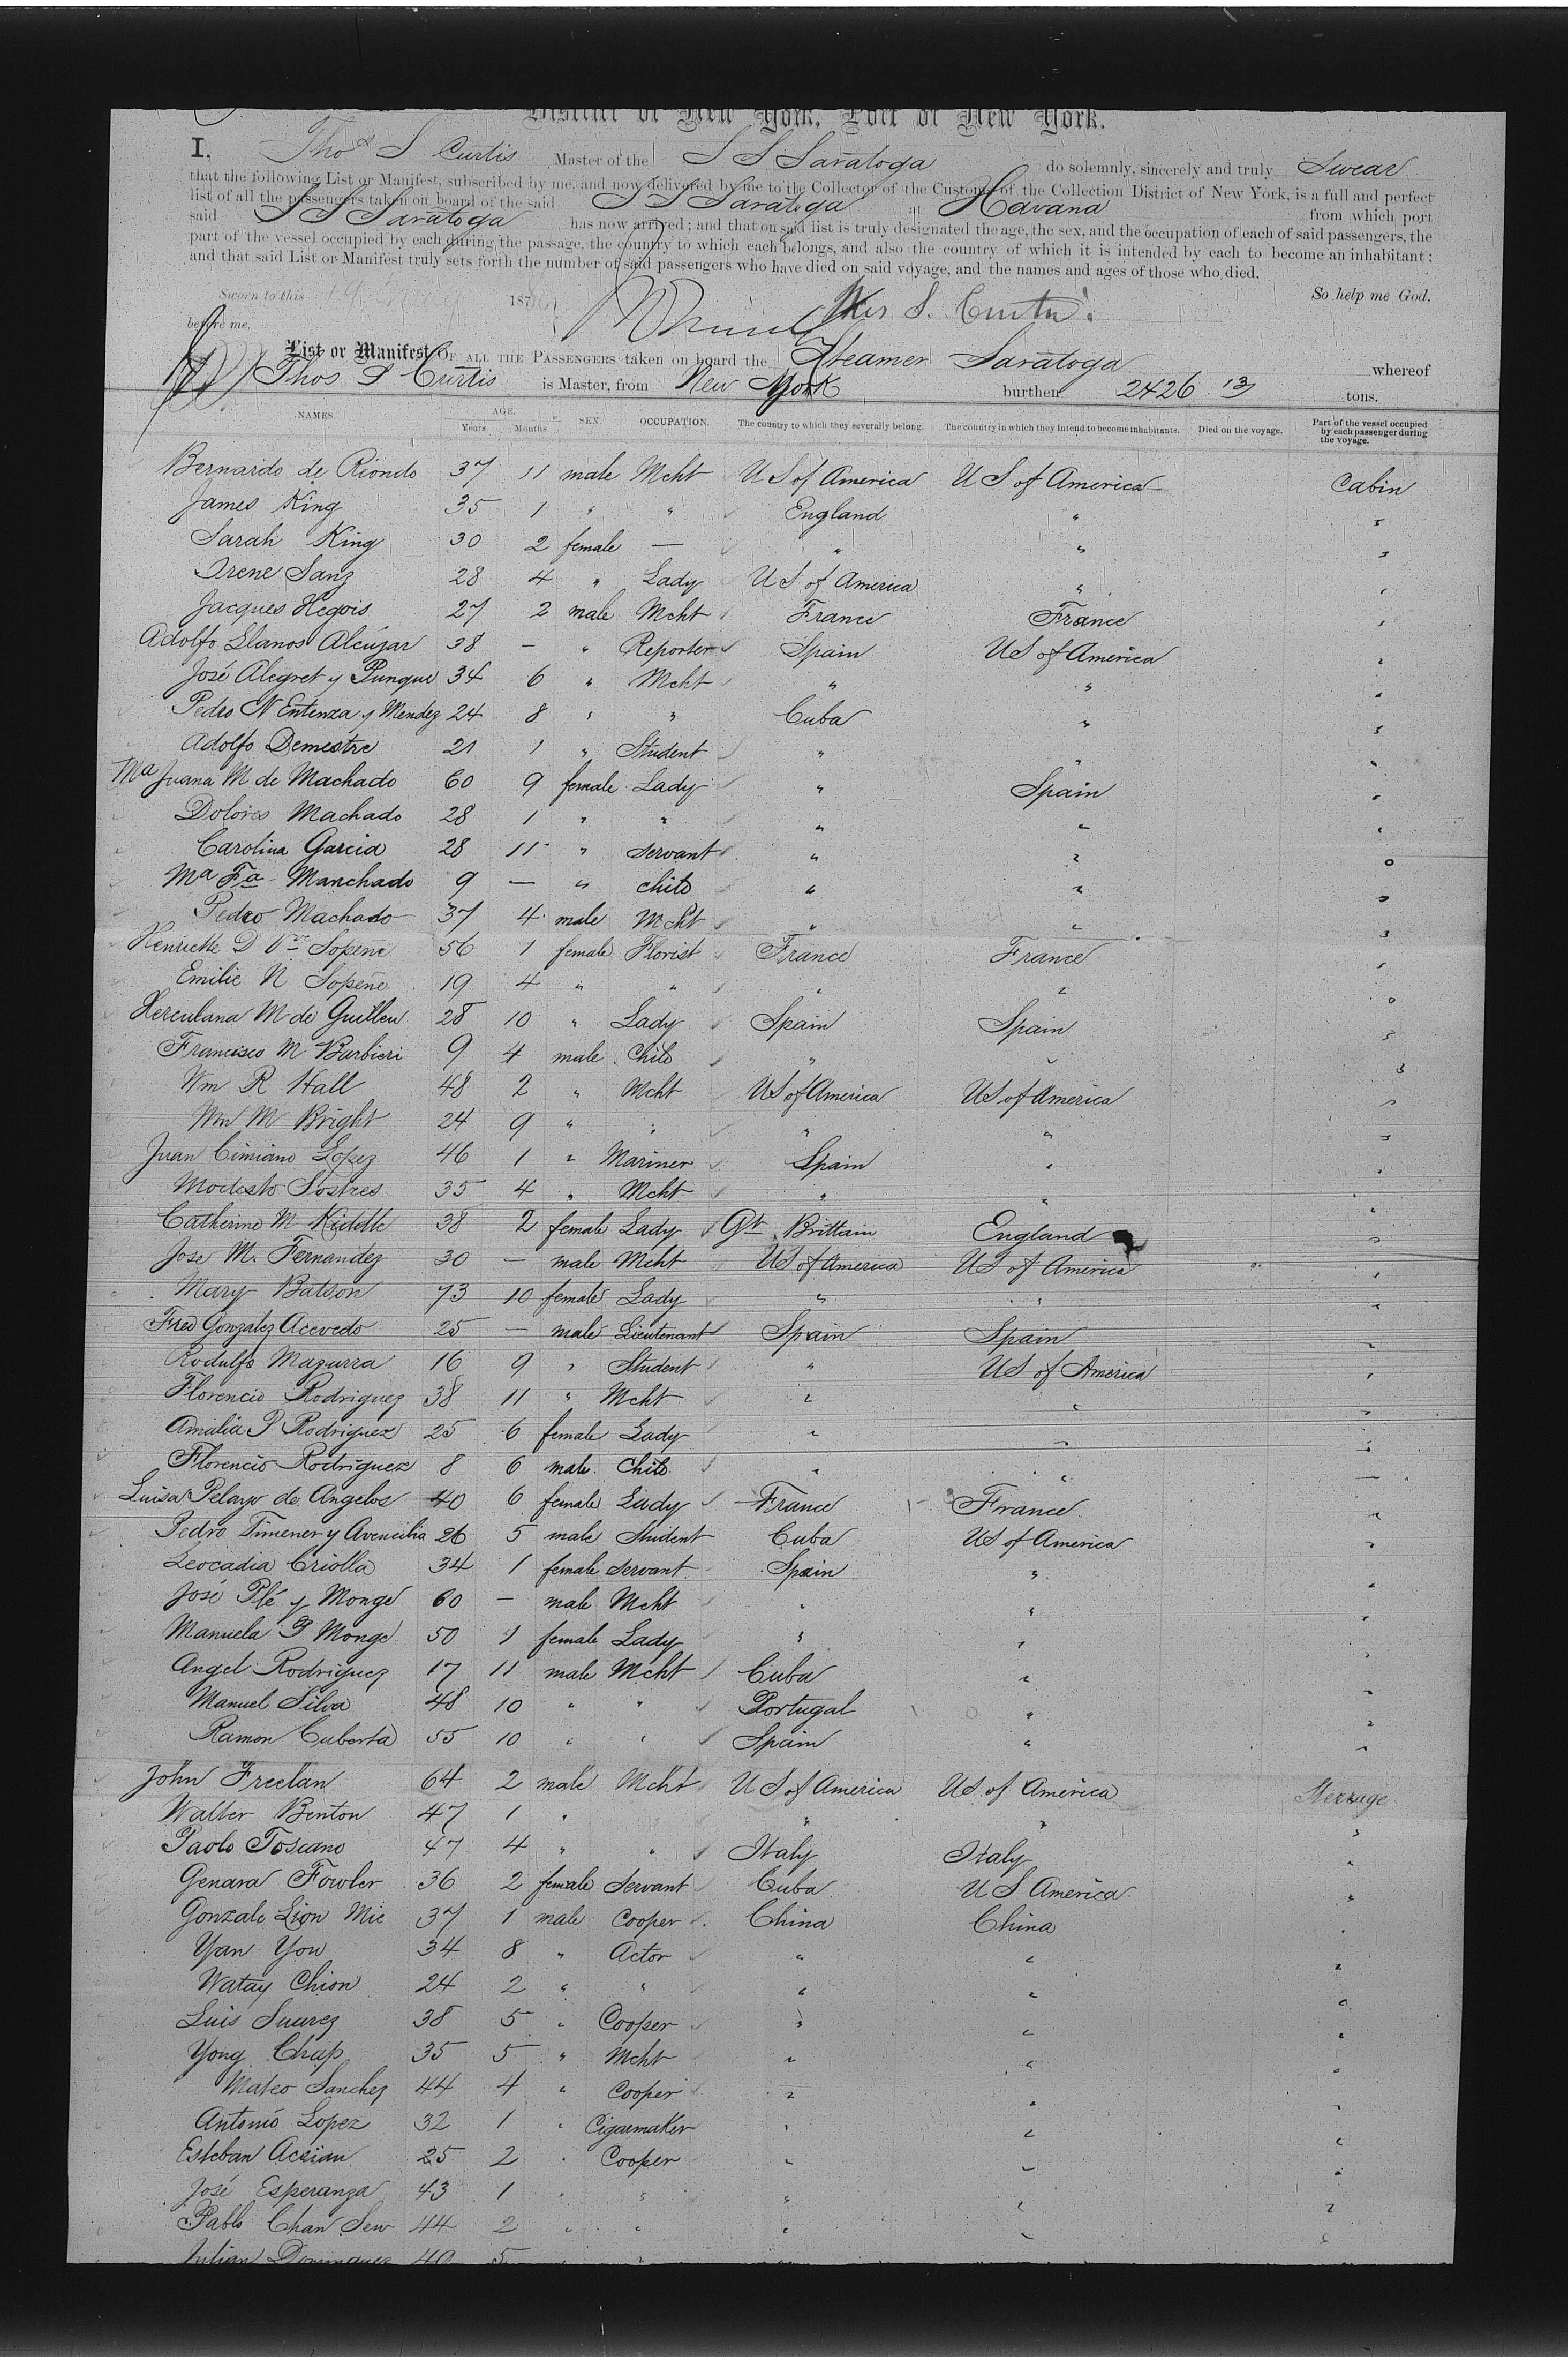 District of New York, Port of New York.
I, Thos S Curtis Master of the S S Saratoga do solemnly, sincerely and truly Swear
that the following List or Manifest, subscribed by me, and now delivered by me to the Collector of the Customs of the Collection District of New York, is a full and perfect
list of all the passengers taken on board of the said S S Saratoga at Havana from which port
said S S Saratoga has now arrived; and that on said list is truly designated the age, the sex, and the occupation of each of said passengers, the
part of the vessel occupied by each during the passage, the country to which each belongs, and also the country of which it is intended by each to become an inhabitant;
and that said List or Manifest truly sets forth the number of said passengers who have died on said voyage, and the names and ages of those who died.
Sworn to this 19 187 So help me God.
before me, Thos S. Curtis
List or Manifest OF ALL THE PASSENGERS taken on board the Steamer Saratoga whereof
Thos S Curtis is Master, from New York burthen 2426 13 tons.
NAMES. AGE. Years. Months. SEX. OCCUPATION. The country to which they severally belong. The country in which they intend to become inhabitants. Died on the voyage. Part of the vessel occupied by each passenger during the voyage.
Bernardo de Riondo 37 11 male Mcht U S of America U S of America Cabin
James King 35 1 " " England " "
Sarah King 30 2 female — " " "
Irene Sanz 28 4 " Lady U S of America " "
Jacques Hegois 27 2 male Mcht France France "
Adolfo Llanos Alcújar 38 — " Reporter Spain U S of America "
José Alegret y Punque 34 6 " Mcht " " "
Pedro N Entenza y Mendez 24 8 " " Cuba " "
Adolfo Demestre 21 1 " Student " " "
Ma Juana M de Machado 60 9 female Lady " Spain "
Dolores Machado 28 1 " " " " "
Carolina Garcia 28 11 " Servant " " "
Ma Fa Manchado 9 — " child " " "
Pedro Machado 37 4 male Mcht " " "
Henriette D Vve Sopene 56 1 female Florist France France "
Emilie N Sopene 19 4 " " " " "
Herculana M de Guillen 28 10 " Lady Spain Spain "
Francisco M Barbieri 9 4 male Child " " "
Wm R Hall 48 2 " Mcht US of America US of America "
Wm M Bright 24 9 " " " " "
Juan Cimiano Lopez 46 1 " Mariner Spain " "
Modesto Sostres 35 4 " Mcht " " "
Catherine M Kidelle 38 2 female Lady Gt Brittain England "
Jose M. Fernandez 30 — male Mcht US of America US of America "
Mary Batson 73 10 female Lady " " "
Fred Gonzalez Acevedo 25 — male Lieutenant Spain Spain "
Rodulfo Mazurra 16 9 " Student " US of America "
Florencio Rodriguez 38 11 " Mcht " " "
Amalia P Rodriguez 25 6 female Lady " " "
Florencio Rodriguez 8 6 male Child " " "
Luisa Pelayo de Angelos 40 6 female Lady France France "
Pedro Timener y Avencilia 26 5 male Student Cuba US of America "
Leocadia Criolla 34 1 female servant Spain " "
José Plé y Monge 60 — male Mcht " " "
Manuela P Monge 50 1 female Lady " " "
Angel Rodriguez 17 11 male Mcht Cuba " "
Manuel Silva 48 10 " " Portugal " "
Ramon Cuberta 55 10 " " Spain " "
John Freelan 64 2 male Mcht U S of America US of America Steerage
Walter Benton 47 1 " " " "
Paolo Toscano 47 4 " " Italy Italy "
Genara Fowler 36 2 female Servant Cuba U S America "
Gonzalo Lion Mie 37 1 male Cooper China China "
Yan You 34 8 " Actor " " "
Watay Chion 24 2 " " " " "
Luis Suarez 38 5 " Cooper " " "
Yong Chap 35 5 " Mcht " " "
Mateo Sanchez 44 4 " Cooper " " "
Antonio Lopez 32 1 " Cigarmaker " " "
Esteban Acsian 25 2 " Cooper " " "
José Esperanza 43 1 " " " " "
Pablo Chan Sew 44 2 " " " " "
Julian Dominguez 40 5 " "